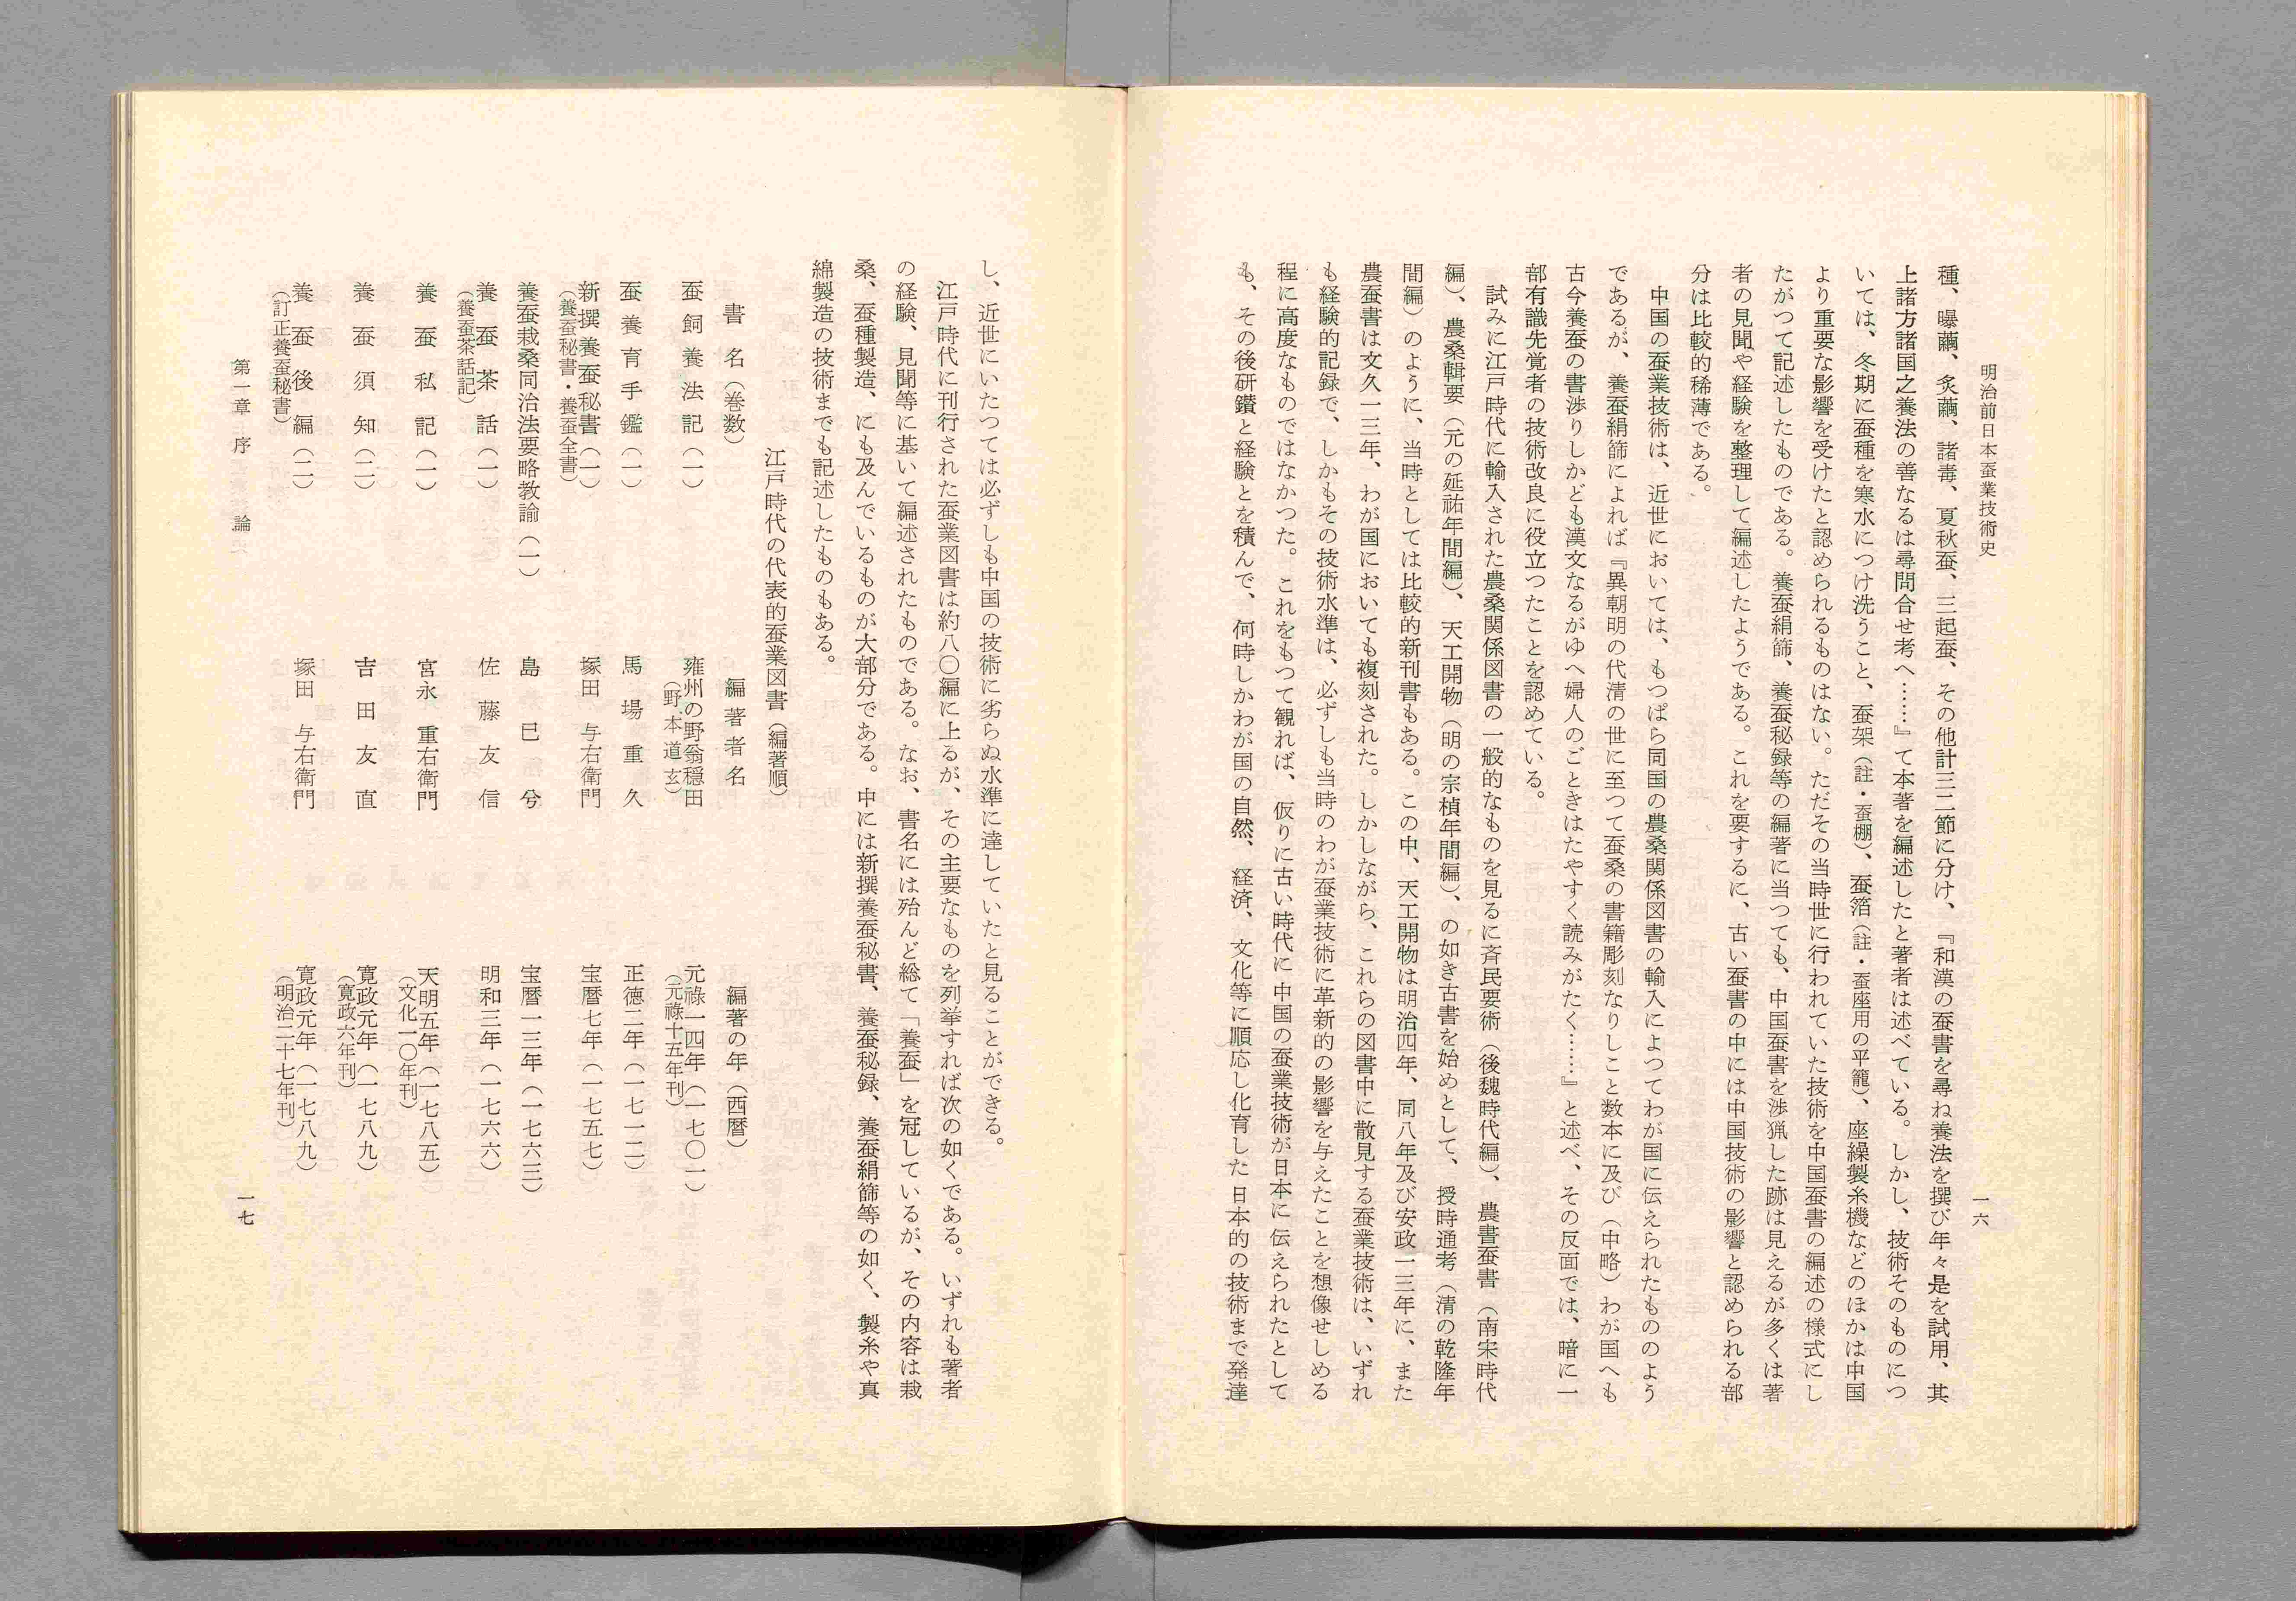 明治前日本蚕業技術史
一六
種、曝繭、炙繭、諸毒、夏秋蚕、三起蚕、その他計三二節に分け、『和漢の蚕書を尋ね養法を撰び年々是を試用、其
上諸方諸国之養法の善なるは尋問合せ考へ……』て本著を編述したと著者は述べている。しかし、技術そのものにつ
いては、冬期に蚕種を寒水につけ洗うこと、蚕架（註・蚕棚）、蚕箔（註・蚕座用の平籠）、座繰製糸機などのほかは中国
より重要な影響を受けたと認められるものはない。ただその当時世に行われていた技術を中国蚕書の編述の様式にし
たがつて記述したものである。養蚕絹篩、養蚕秘録等の編著に当つても、中国蚕書を渉猟した跡は見えるが多くは著
者の見聞や経験を整理して編述したようである。これを要するに、古い蚕書の中には中国技術の影響と認められる部
分は比較的稀薄である。
中国の蚕業技術は、近世においては、もつぱら同国の農桑関係図書の輸入によつてわが国に伝えられたもののよう
であるが、養蚕絹篩によれば『異朝明の代清の世に至つて蚕桑の書籍彫刻なりしこと数本に及び（中略）わが国へも
古今養蚕の書渉りしかども漢文なるがゆへ婦人のごときはたやすく読みがたく……』と述べ、その反面では、暗に一
部有識先覚者の技術改良に役立つたことを認めている。
試みに江戸時代に輸入された農桑関係図書の一般的なものを見るに斉民要術（後魏時代編）、農書蚕書（南宋時代
編）、農桑輯要（元の延祐年間編）、天工開物（明の宗楨年間編）、の如き古書を始めとして、授時通考（清の乾隆年
間編）のように、当時としては比較的新刊書もある。この中、天工開物は明治四年、同八年及び安政一三年に、また
農蚕書は文久一三年、わが国においても複刻された。しかしながら、これらの図書中に散見する蚕業技術は、いずれ
も経験的記録で、しかもその技術水準は、必ずしも当時のわが蚕業技術に革新的の影響を与えたことを想像せしめる
程に高度なものではなかつた。これをもつて観れば、仮りに古い時代に中国の蚕業技術が日本に伝えられたとして
も、その後研鑽と経験とを積んで、何時しかわが国の自然、経済、文化等に順応し化育した日本的の技術まで発達
し、近世にいたつては必ずしも中国の技術に劣らぬ水準に達していたと見ることができる。
江戸時代に刊行された蚕業図書は約八〇編に上るが、その主要なものを列挙すれば次の如くである。いずれも著者
の経験、見聞等に基いて編述されたものである。なお、書名には殆んど総て「養蚕」を冠しているが、その内容は栽
桑、蚕種製造、にも及んでいるものが大部分である。中には新撰養蚕秘書、養蚕秘録、養蚕絹篩等の如く、製糸や真
綿製造の技術までも記述したものもある。
江戸時代の代表的蚕業図書（編著順）
書名（巻数）　編著者名　編著の年（西暦）
蚕飼養法記（一）　雍州の野翁穏田　元祿一四年（一七〇一）
（野本道玄）　（元祿十五年刊）
蚕養育手鑑（一）　馬場重久　正徳二年（一七一二）
新撰養蚕秘書（一）　塚田与右衛門　宝暦七年（一七五七）
（養蚕秘書・養蚕全書）
養蚕栽桑同治法要略教諭（一）　島巳兮　宝暦一三年（一七六三）
養蚕茶話（一）　佐藤友信　明和三年（一七六六）
（養蚕茶話記）
養蚕私記（一）　宮永重右衛門　天明五年（一七八五）
（文化一〇年刊）
養蚕須知（二）　吉田友直　寛政元年（一七八九）
（寛政六年刊）
養蚕後編（二）　塚田与右衛門　寛政元年（一七八九）
（訂正養蚕秘書）　（明治二十七年刊）
第一章　序論
一七